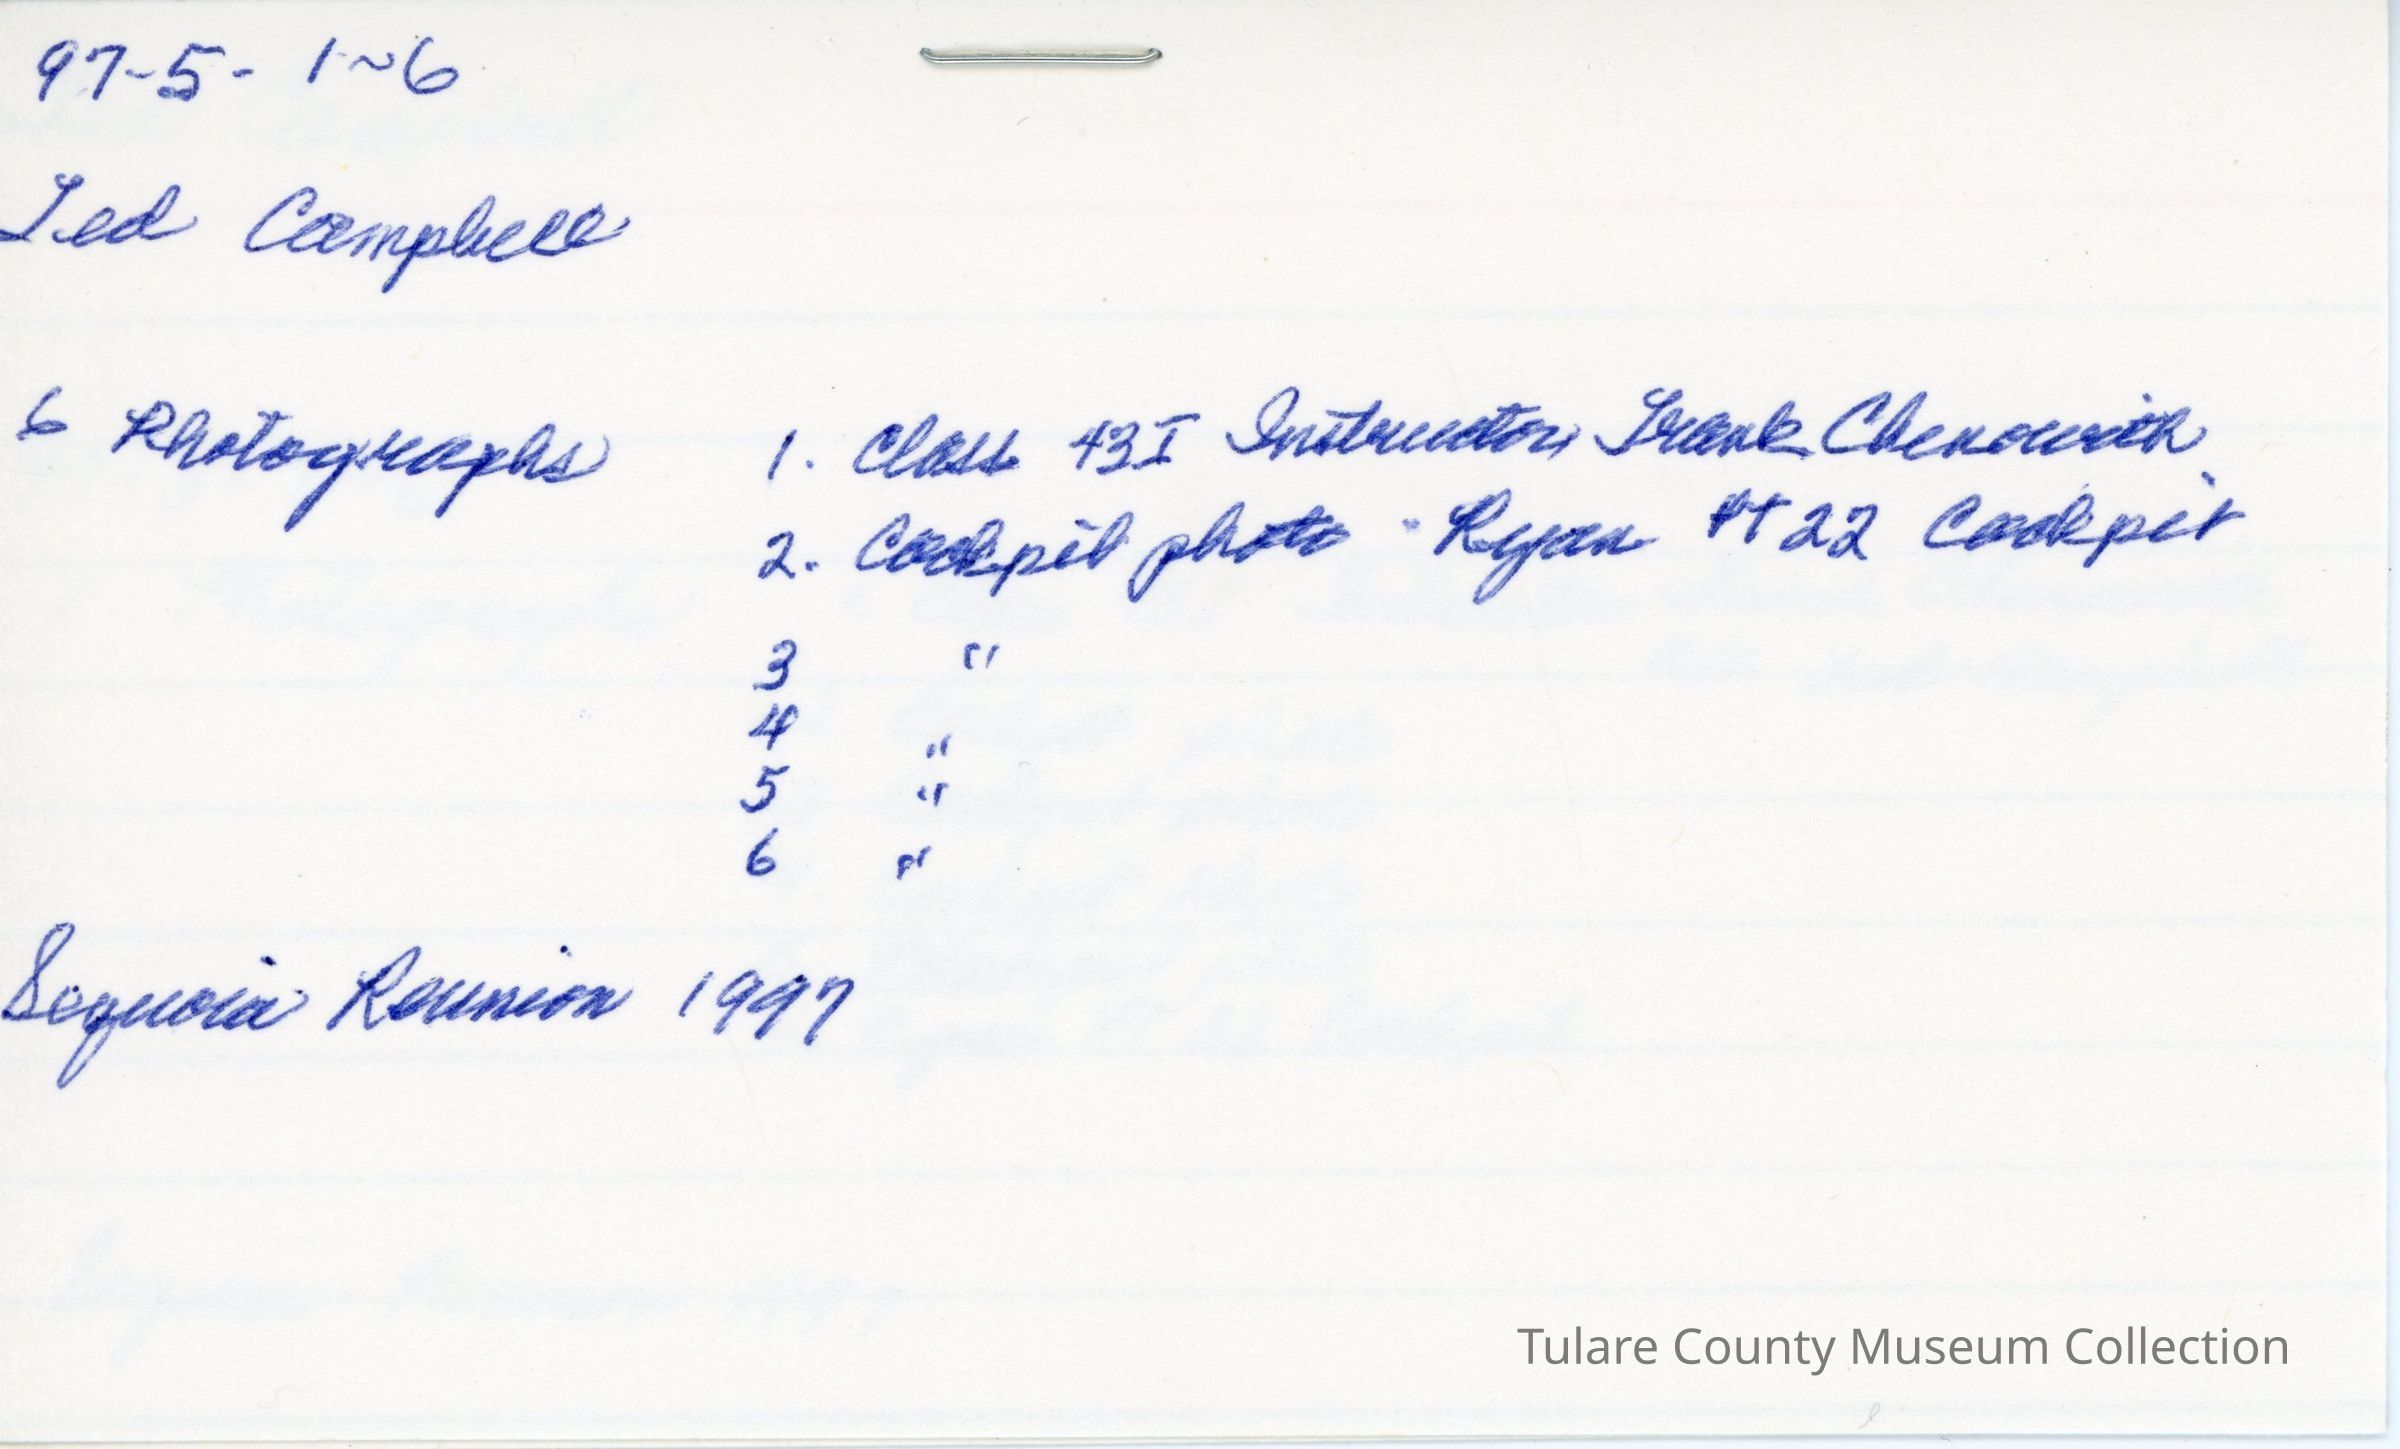 97-5- 1~6
Ted Campbell
6 Photographs 1. Class 43I Instructor Frank Chenowith
2. Cockpit photo - Ryan PT 22 Cockpit
3 "
4 "
5 "
6 "
Sequoia Reunion 1997
Tulare County Museum Collection